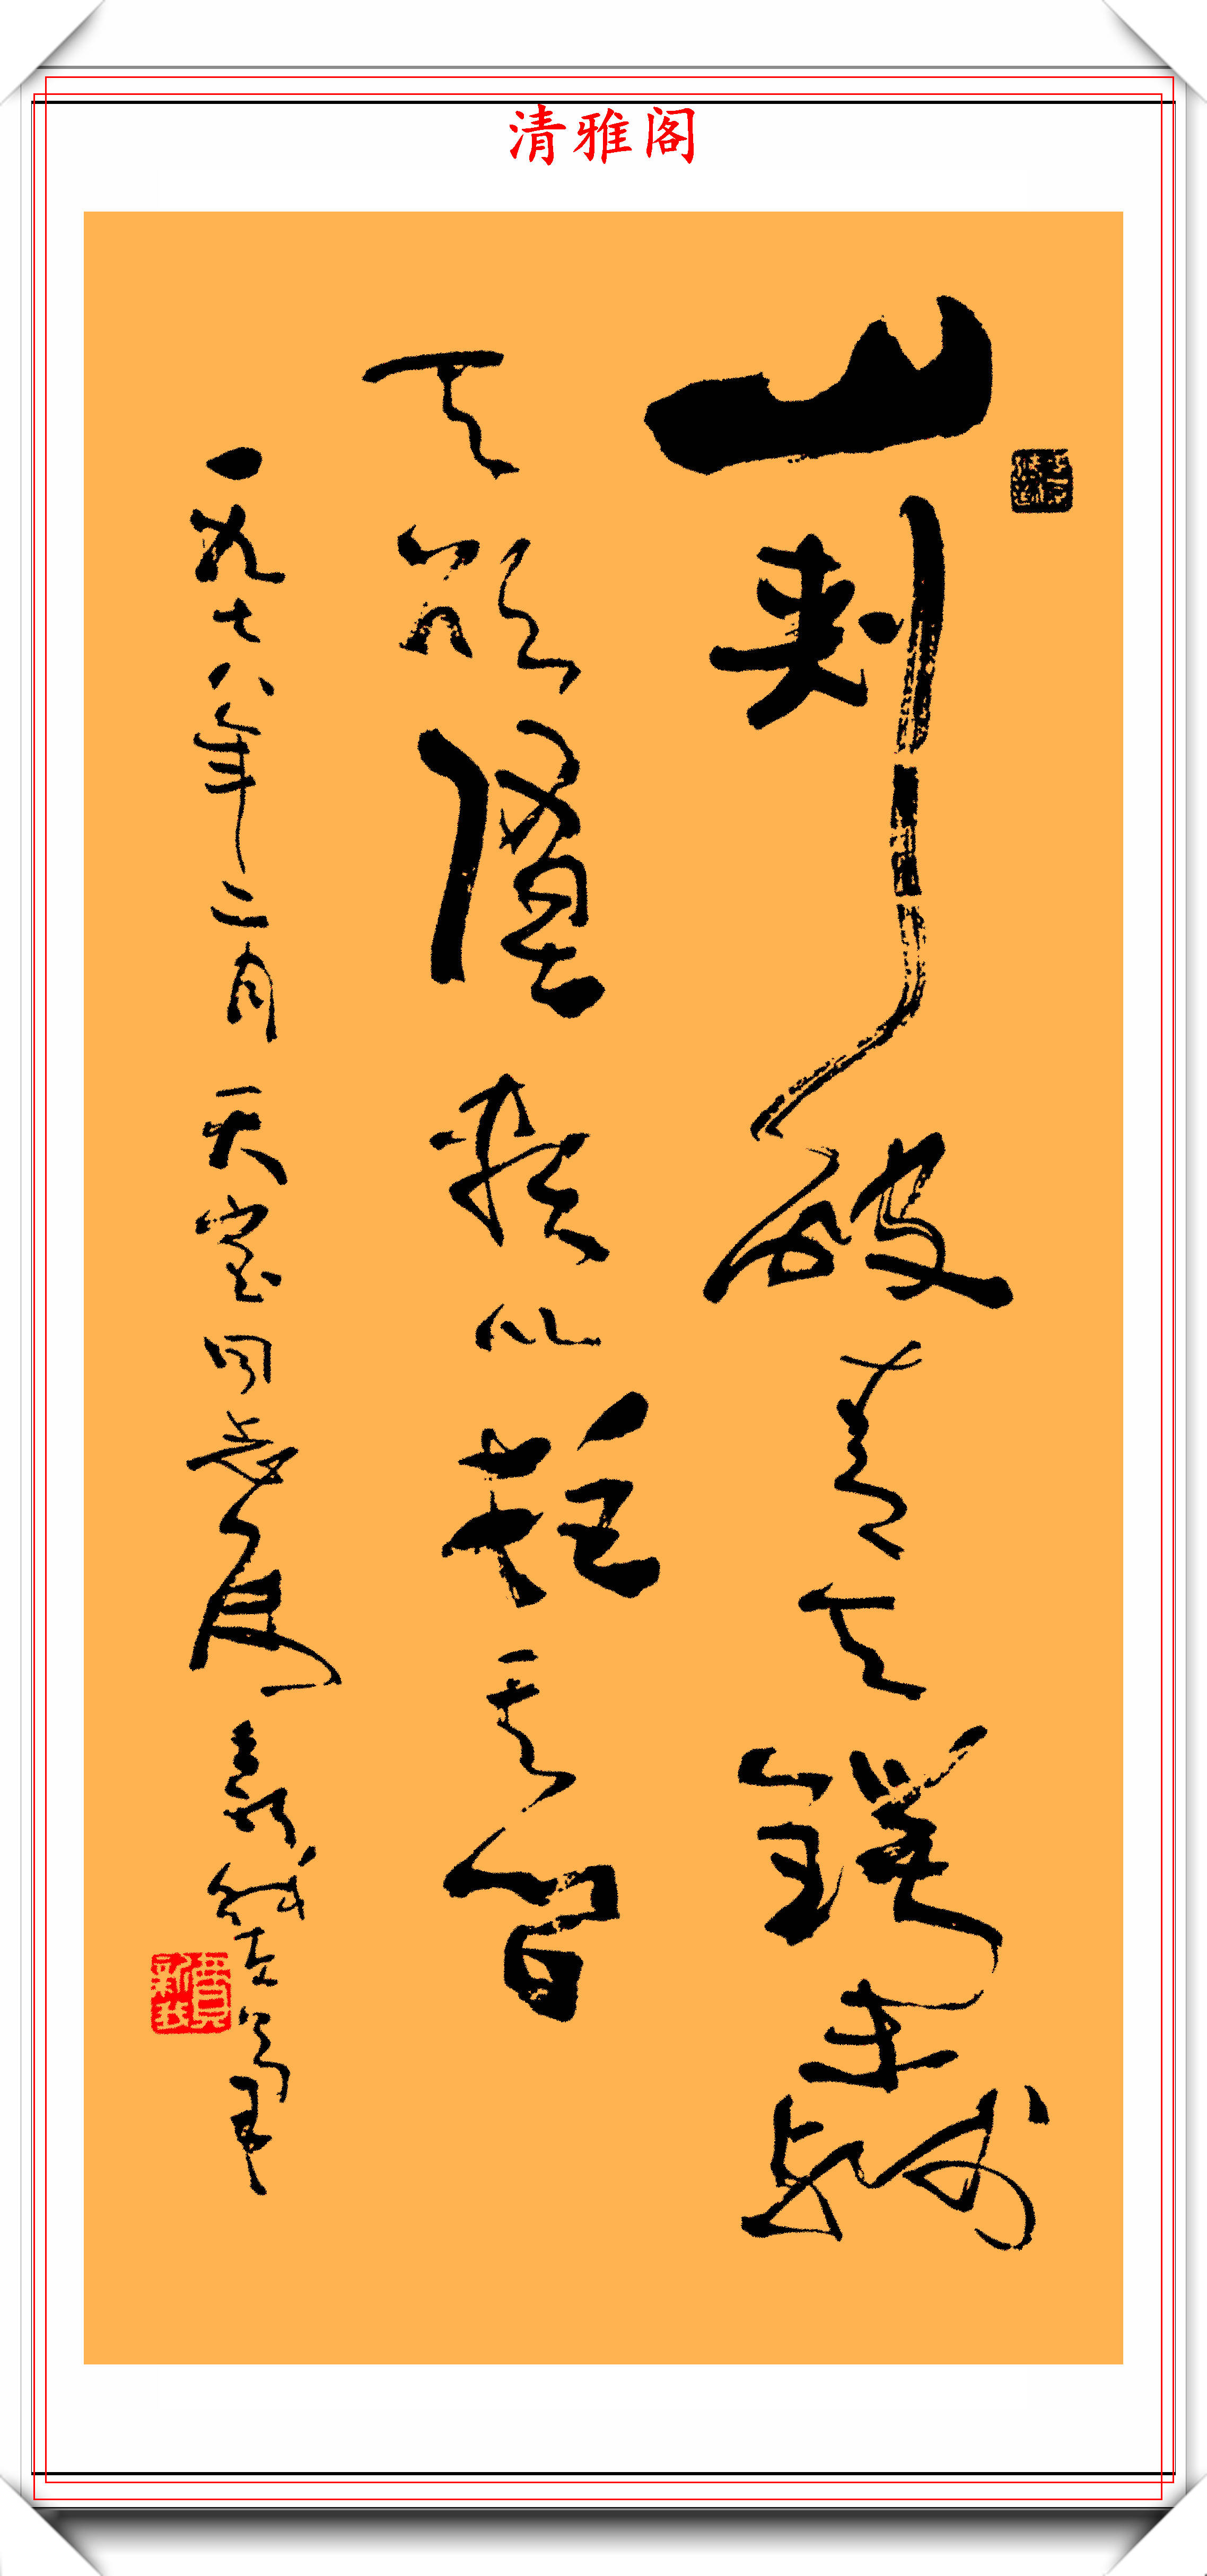 清雅阁
山刺破青天锷未残
天欲堕赖以拄其间
一九七八年二月天宝同志属